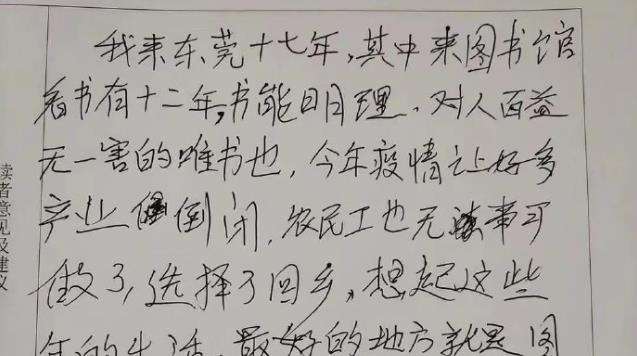 我来东莞十七年，其中来图书馆
看书有十二年，书能明理，对人百益
无一害的唯书也，今年疫情让好多
产业倒闭，农民工也无事可
做了，选择了回乡，想起这些
年的生活，最好的地方就是图
读者意见及建议